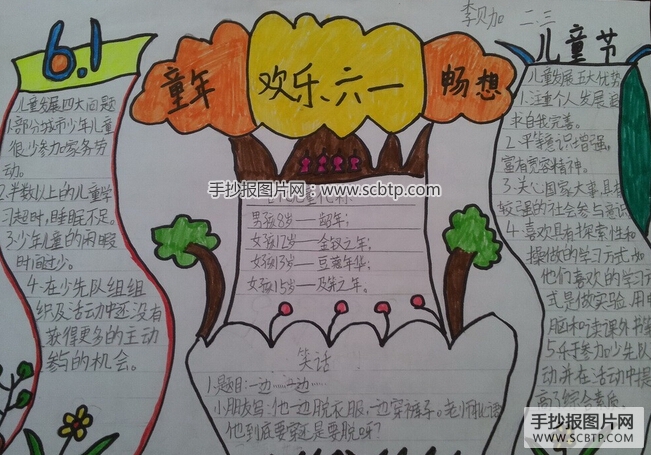 李贝加 二.三
6.1
童年
欢乐六一
畅想
儿童节
儿童发展四大问题
1.部分城市少年儿童
很少参加家务劳
动。
2.半数以上的儿童学
习超时,睡眠不足。
3.少年儿童的闲暇
时间过少。
4.在少先队组组
织及活动中还没有
获得更多的主动
参与的机会。
手抄报图片网:www.scbtp.com
男孩8岁——龆年;
女孩12岁——金钗之年;
女孩13岁——豆蔻年华;
女孩15岁——及笄之年。
笑话
1.题目:一边……一边……
小朋友写:他一边脱衣服,一边穿裤子。老师批语:
他到底要穿还是要脱呀?
儿童发展五大优势
1.注重个人发展
求自我完善。
2.平等意识增强,
富有宽容精神。
3.关心国家大事,具
较强的社会参与意识
4.喜欢具有探索性和
操做的学习方式,如
他们喜欢的学习方
式是做实验、用电
脑和读课外书等
5.乐于参加少先队
动并在活动中提
高了综合素质
手抄报图片网
WWW.SCBTP.COM